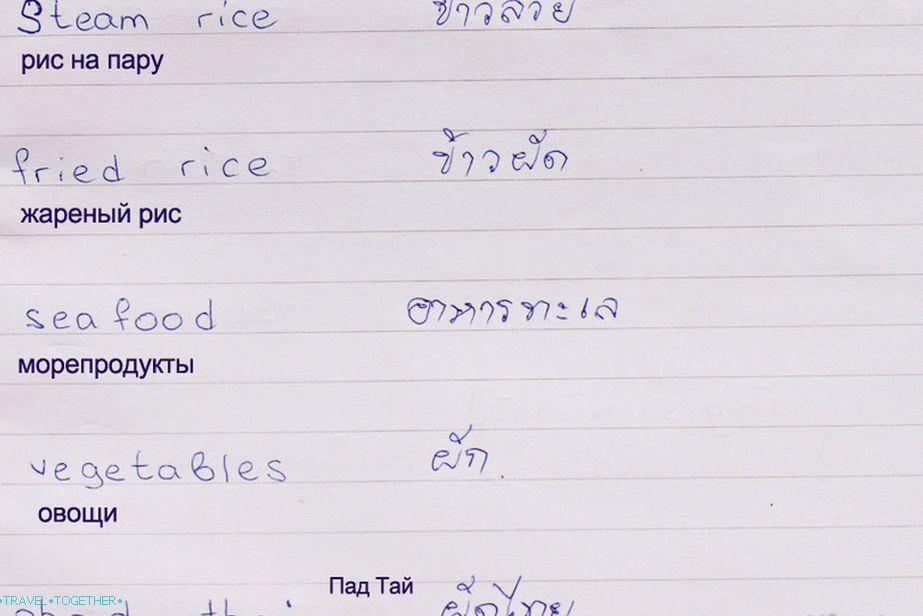 Steam rice ข้าวสวย
рис на пару
fried rice ข้าวผัด
жареный рис
seafood อาหารทะเล
морепродукты
vegetables ผัก.
овощи
Пад Тай
ผัดไทย
•TRAVEL•TOGETHER•